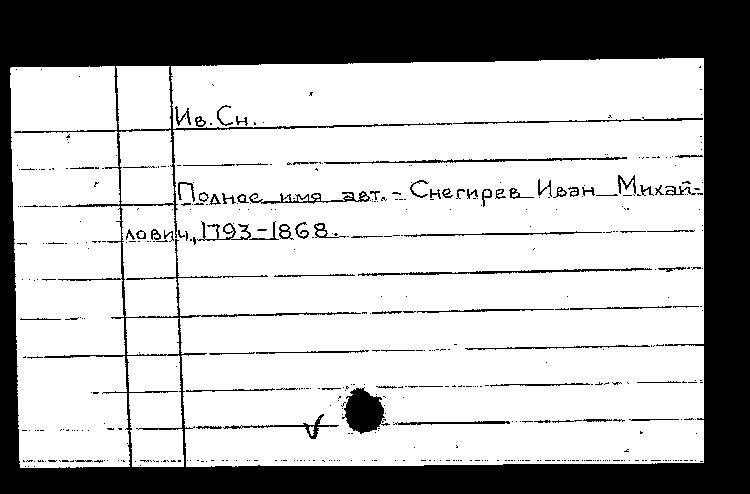 Ив. Сн.
Полное имя авт. - Снегирев Иван Михай-
лович, 1793-1868.